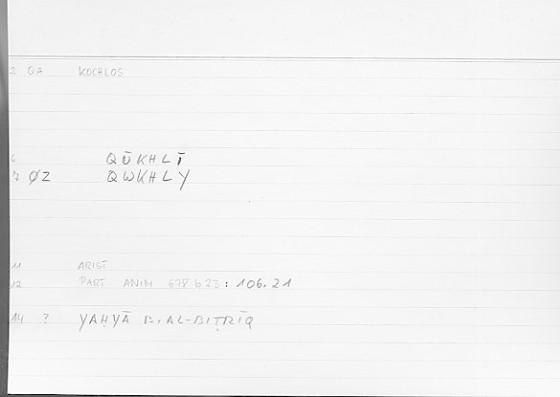 2 QA KOCHLOS
6 QŪKHLĪ
7 ØZ QWKHLY
11 ARIST
12 PART ANIM 678 b 23 : 106.21
14 ? YAḤYĀ B. AL-BIṬRĪQ